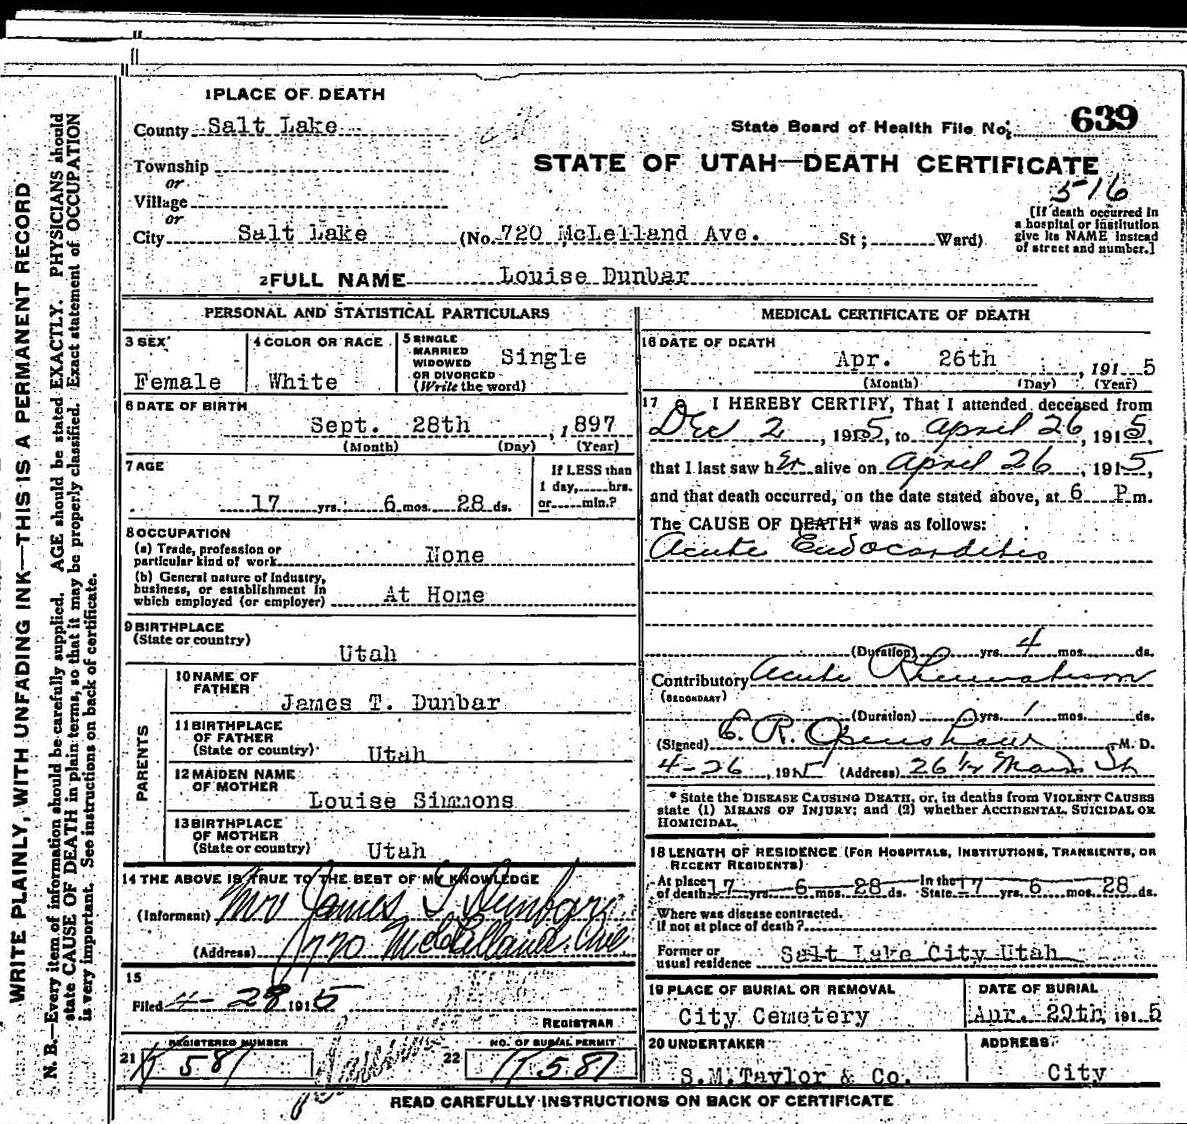 1 PLACE OF DEATH
County Salt Lake
State Board of Health File No. 639
Township
or
Village
or
STATE OF UTAH—DEATH CERTIFICATE
516
[If death occurred in
a hospital or institution
give its NAME instead
of street and number.]
City Salt Lake (No. 720 McLelland Ave. St; Ward)
2 FULL NAME Louise Dunbar
PERSONAL AND STATISTICAL PARTICULARS
3 SEX
Female
4 COLOR OR RACE
White
5 SINGLE
MARRIED
WIDOWED
OR DIVORCED
(Write the word)
Single
6 DATE OF BIRTH
Sept. 28th, 1897
(Month) (Day) (Year)
7 AGE
17 yrs. 6 mos. 28 ds.
If LESS than
1 day, hrs.
or min.?
8 OCCUPATION
(a) Trade, profession or
particular kind of work None
(b) General nature of Industry,
business, or establishment in
which employed (or employer) At Home
9 BIRTHPLACE
(State or country)
Utah
PARENTS
10 NAME OF
FATHER
James T. Dunbar
11 BIRTHPLACE
OF FATHER
(State or country) Utah
12 MAIDEN NAME
OF MOTHER
Louise Simmons
13 BIRTHPLACE
OF MOTHER
(State or country) Utah
14 THE ABOVE IS TRUE TO THE BEST OF MY KNOWLEDGE
(Informant) Mrs James T Dunbar
(Address) 720 McClelland Ave
15
Filed 4-28 1915
REGISTRAR
REGISTERED NUMBER
21 K 587
NO. OF BURIAL PERMIT
22 K 587
MEDICAL CERTIFICATE OF DEATH
16 DATE OF DEATH
Apr. 26th, 1915
(Month) (Day) (Year)
17 I HEREBY CERTIFY, That I attended deceased from
Dec 2, 1915, to April 26, 1915,
that I last saw her alive on April 26, 1915,
and that death occurred, on the date stated above, at 6 P m.
The CAUSE OF DEATH* was as follows:
Acute Endocarditis
(Duration) yrs. 4 mos. ds.
Contributory Acute Rheumatism
(SECONDARY)
(Duration) 0 yrs. 1 mos. ds.
(Signed) C. R. Openshaw M. D.
4-26, 1915 (Address) 26 1/2 Main St
* State the DISEASE CAUSING DEATH, or, in deaths from VIOLENT CAUSES
state (1) MEANS OF INJURY; and (2) whether ACCIDENTAL, SUICIDAL OR
HOMICIDAL.
18 LENGTH OF RESIDENCE (FOR HOSPITALS, INSTITUTIONS, TRANSIENTS, OR
RECENT RESIDENTS)
At place
of death 17 yrs. 6 mos. 28 ds.
In the
State 17 yrs. 6 mos. 28 ds.
Where was disease contracted.
If not at place of death?
Former or
usual residence Salt Lake City Utah
19 PLACE OF BURIAL OR REMOVAL
City Cemetery
DATE OF BURIAL
Apr. 29th, 1915
20 UNDERTAKER
S.M. Taylor & Co.
ADDRESS
City
READ CAREFULLY INSTRUCTIONS ON BACK OF CERTIFICATE
WRITE PLAINLY, WITH UNFADING INK—THIS IS A PERMANENT RECORD
N. B.—Every item of information should be carefully supplied. AGE should be stated EXACTLY. PHYSICIANS should
state CAUSE OF DEATH in plain terms, so that it may be properly classified. Exact statement of OCCUPATION
is very important. See instructions on back of certificate.